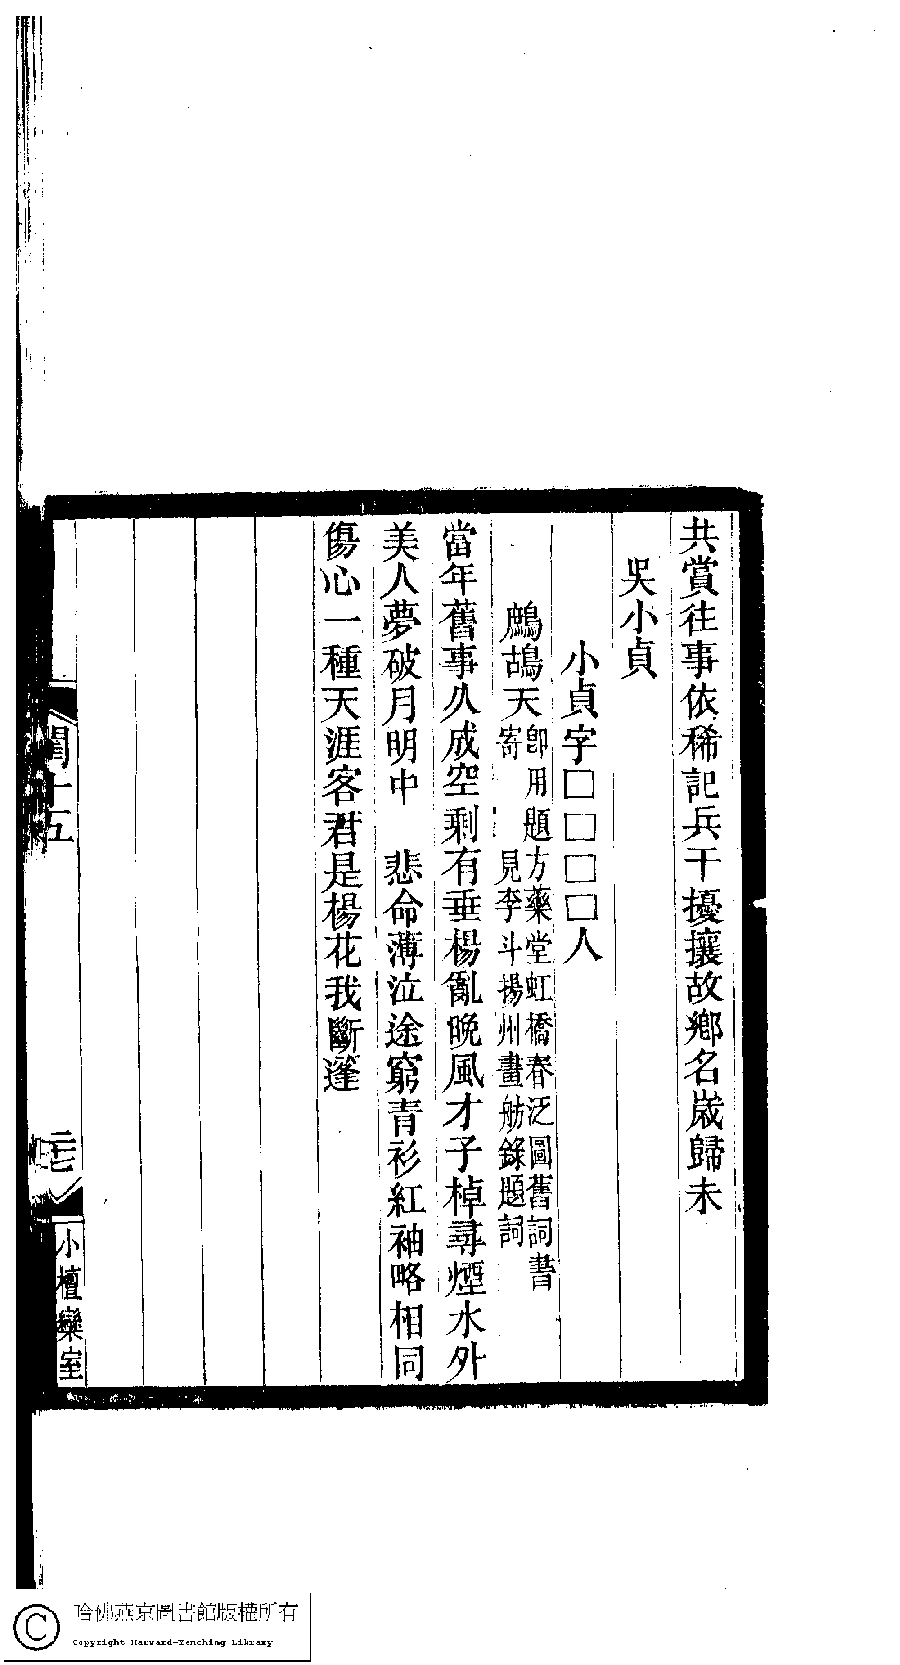 共賞往事依稀記兵干擾攘故鄉名歲歸未
吳小貞
小貞字□□□□人
鷓鴣天卽用題方藥堂虹橋春泛圖舊詞書
寄 見李斗揚州畫舫錄題詞
當年舊事久成空剩有垂楊亂晚風才子棹尋煙水外
美人夢破月明中 悲命薄泣途窮青衫紅袖略相同
傷心一種天涯客君是楊花我斷蓬
閨十五
小檀欒室
哈佛燕京圖書館版權所有
Copyright Harvard-Yenching Library